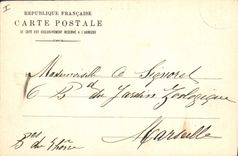 RÉPUBLIQUE FRANÇAISE
CARTE POSTALE
CE CÔTÉ EST EXCLUSIVEMENT RÉSERVÉ A L'ADRESSE
Mademoiselle C Signoret
6 Bd du Jardin Zoologique
Marseille
Bes du Rhône